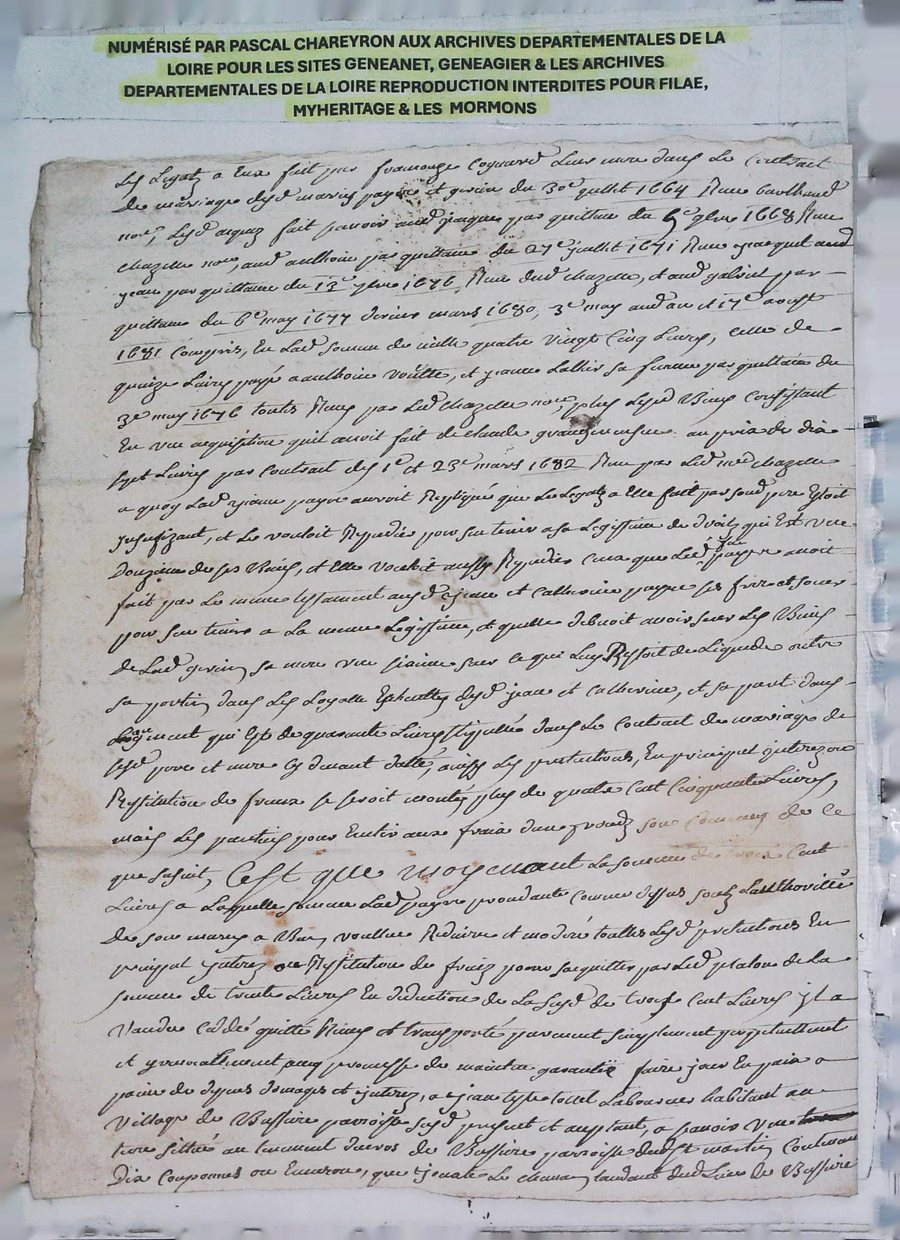 NUMÉRISÉ PAR PASCAL CHAREYRON AUX ARCHIVES DEPARTEMENTALES DE LA
LOIRE POUR LES SITES GENEANET, GENEAGIER & LES ARCHIVES
DEPARTEMENTALES DE LA LOIRE REPRODUCTION INTERDITES POUR FILAE,
MYHERITAGE & LES MORMONS
Les Legatz a Eux fait par francoyze Leur mere dans Le Contract
De mariage desd maries payre et gerin du 30e Juillet 1664 Reçeu
nore, Lesd acquis fait sçavoir aud jacques par quittance du 5e 9bre 1668 Reçeu
chazelle nore, aud anthoine par quittance du 27e juillet 1671 Reçeu jacquet aud
jean par quittance du 13e 9bre 1676 Reçeu dud chazelle, et aud gabriel par
quittance du 6e may 1677 dernier mars 1680, 3e may aud an et 17e aoust
1681 Compris, En Lad somme de mille quatre vingt Cinq Livres, celle de
quinze Livres payé a anthoine et jeanne Lallier sa femme par quittance du
3e may 1676 toutes Reçeus par Led chazelle nore, plus Lesd Biens Consistant
En une acquisition quil auroit fait de claude au prix de dix
sept Livres par Contract des 1e et 23e mars 1682 Reçeu par Led nore chazelle
a quoy Lad payre auroit Repliqué que Le Legatz a Elle fait par sond pere Estoit
Insufizant, et Le vouloit Repudier pour sen tenir a sa Legitime de droit qui Est une
Douzieme de ses Biens, et Elle vouloit aussy Repudier Ceux que Led feu payre auoit
fait par Le mesme testament ausd jean et Catherine payre ses frere et soeur
pour sen tenir a La mesme Legitime, et quelle debuoit avoir sur Les Biens
de Lad gerin sa mere une sur ce qui Luy Restoit de Liquide outre
sa portion dans Les Loyalle desd jean et Catherine, et sa part dans
qui Est de quarante Livres stipullée dans Le Contract de mariage de
sesd pere et mere cy deuant datté, aussy Les pretentions, En principal Interez ou
Restitution de fruicts se seroit montés plus de quatre Cent Cinquante Livres,
mais Les parties pour Euiter aux fraix dun proces sont de ce
que sensuit, Cest que moyenant La somme de trois Cent
Livres a Laquelle somme Lad payre procedante comme dessus soubz Lauthorité
De son mary a Bien voullue Reduire et moderé touttes Lesd pretentions En
principal Interez ou Restitution de fruictz pour sacquitter par Led de La
somme de trente Livres En deduction de La susd de trois Cent Livres il a
Vandu ceddé quitté Remis et transporté purement simplement perpetuellement
et yreuocablement auec promesse de maintenir garantir faire jouir En paix a
paine de despens domages et Interez, a Collet Laboureur habitant au
Village de Bussiere parroisse susd present et aceptant, a scavoir une
terre sittuée au tenement de Bussiere parroisse dud St martin Contenant
Dix Couponnes ou Enuiron, que jouxte Le chemin tandant dud Lieu de Bussiere